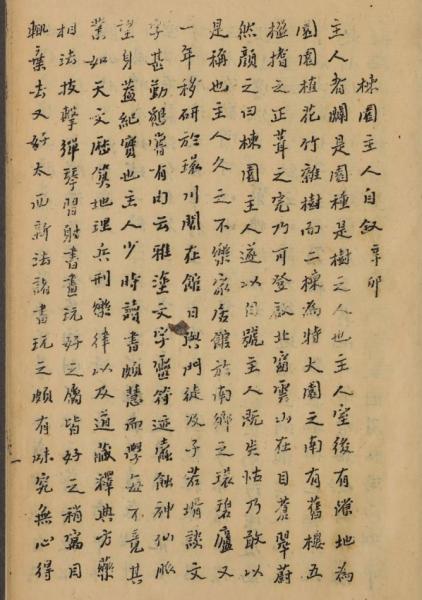 楝園主人自敘辛卯
主人者闢是園種是樹之人也主人室後有隙地為
園園植花竹雜樹而二楝為特大園之南有舊樓五
楹擔之正葺之完乃可登啟北窗雲山在目蒼翠蔚
然顏之曰楝園主人遂以自號主人既失怙乃敢以
是稱也主人久之不樂家居館於南鄉之環碧廬又
一年移研於環川閣在館日與門徒及子若壻談文
字甚勤鶴齋有句云雅塗文字靈符迹蠹蝕神仙脈
望身蓋紀實也主人少時讀書頗慧而學每不竟其
業如天文厤算地理兵刑樂律以及道藏釋典方藥
相法技擊彈琴習射書畫玩好之屬皆好之稍寓目
輒棄去又好太西新法諸書玩之頗有味究無心得